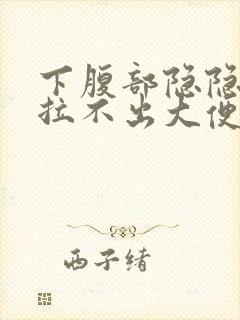 下腹部隐隐
拉不出大便
西子绪